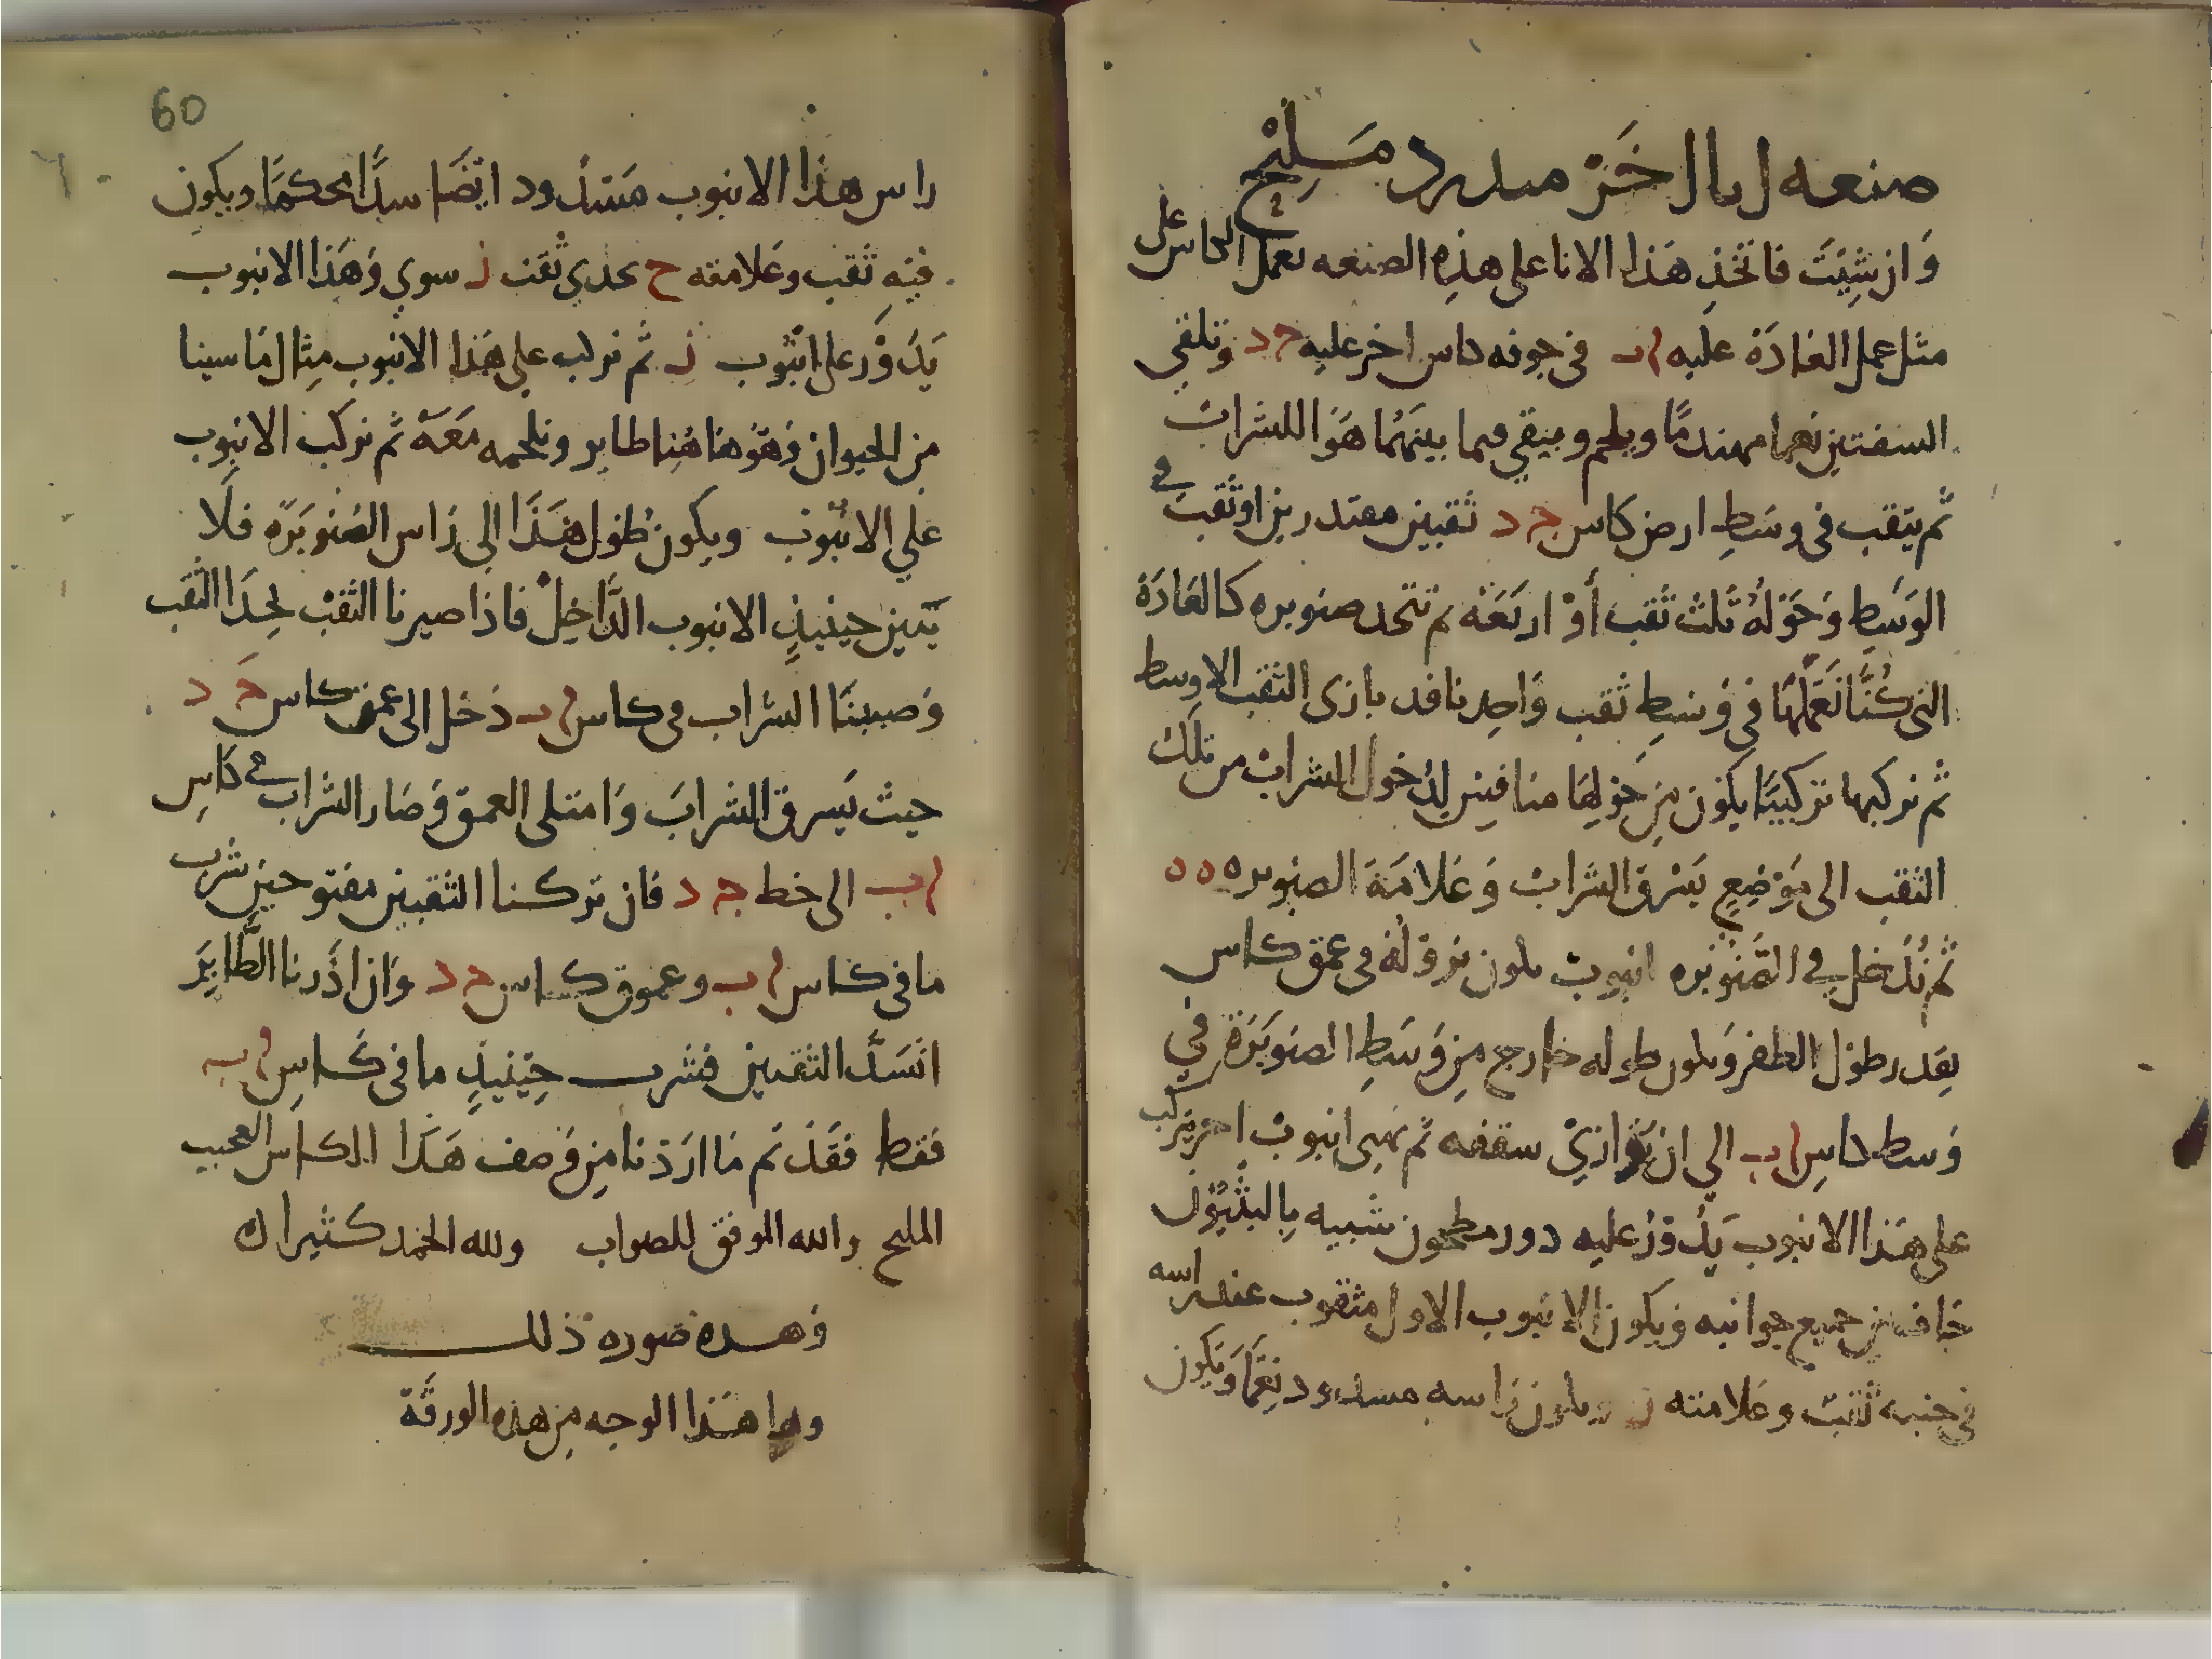 وان شئت فاتخذ هذا الانا على هذه الصنعه تعمل الكاس على
مثل عمل العادة عليه اب في جوفه كاس اخر عليه ج د وتلقي
السفتين نعما مهندما ويلحم ويبقي فيما بينهما هوا للشراب
ثم يثقب في وسط ارض كاس ج د ثقبين مقتدرين او ثقب في
الوسط وحوله ثلث ثقب أو اربعه ثم تتخد صنوبره كالعادة
التي كنا نعملها في وسط ثقب واحد نافد بازى الثقب الاوسط
ثم نركبها تركيبا يكون من حولها منافس لدخول الشراب من تلك
الثقب الى موضع يسرق الشراب وعلامة الصنوبره ه ه
ثم ندخل في الصنوبره انبوب يكون نزوله في عمق كاس
بقدر طول الظفر ويكون طوله خارج من وسط الصنوبرة في
وسط كاس اب الي ان يوازي سقفه ثم نهيى انبوب اخر يركب
على هذا الانبوب يدور عليه دور مطحون شبيه بالبثيون
خافه من جميع جوانبه ويكون الانبوب الاول مثقوب عند راسه
في جنبه ثقب وعلامته ز ويكون راسه مسدود نعما ويكون
60
راس هذا الانبوب مسدود ايضا سدا محكما ويكون
فيه ثقب وعلامته ح بحدى ثقب ز سوي وهذا الانبوب
يدور على انبوب ز ثم نركب علي هذا الانبوب مثال ما سينا
من الحيوان وهو هاهنا طاير ونلحمه معه ثم نركب الانبوب
علي الانبوب ويكون طول هذا الي راس الصنوبره فلا
يبين حينيذ الانبوب الداخل فاذا صيرنا الثقب لحدا الثقب
وصببنا الشراب في كاس اب دخل الى عمق كاس ج د
حيث يسرق الشراب وامتلى العمق وصار الشراب في كاس
اب الى خط ج د فان تركنا الثقبين مفتوحين شرب
ما في كاس اب وعموق كاس ج د وان ادرنا الطاير
انسد الثقبين فشرب حينيذ ما في كاس اب
فقط فقد تم ما اردنا من وصف هذا الكاس العجيب
المليح والله الموفق للصواب ولله الحمد كثيرا
وهده صوره ذلك
هذا الوجه من هذه الورقة